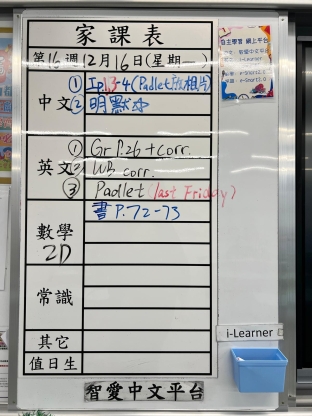 家課表
第16週12月16日(星期一)
中文
① Ip13-4(Padlet放相片)
② 明默本
英文
① Gr P.26 + corr.
② WB corr.
③ Padlet (last Friday)
數學
2D
書 P.72-73
常識
其它
值日生
智愛中文平台
自主學習 網上平台
智愛中文平台
i-Learner